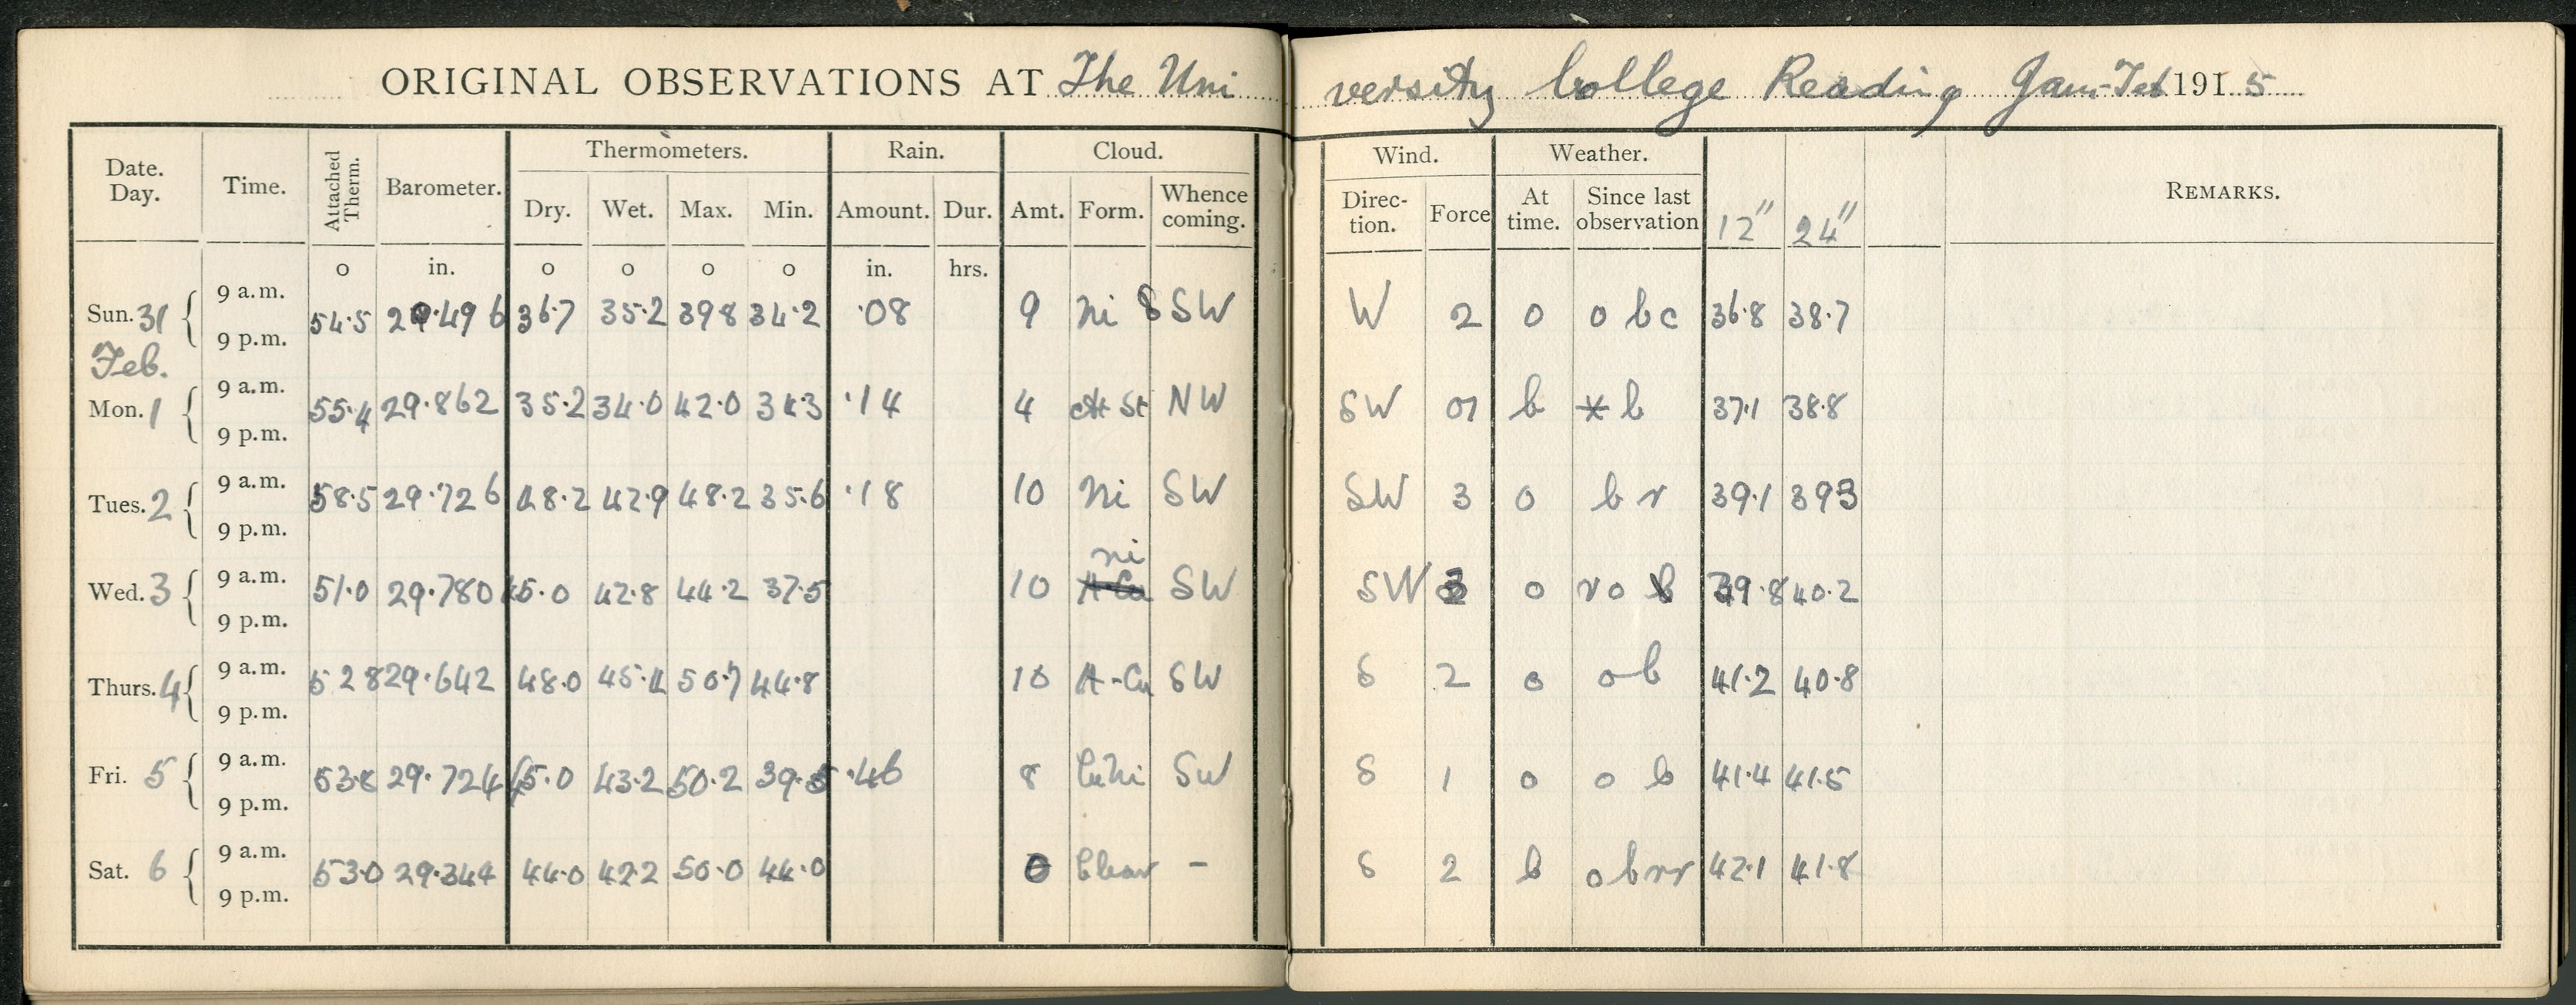 ORIGINAL OBSERVATIONS AT The University College Reading Jan-Feb 1915
Date. Day. Time. Attached Therm. Barometer. Thermometers. Rain. Cloud. Wind. Weather. 12" 24" REMARKS.
Dry. Wet. Max. Min. Amount. Dur. Amt. Form. Whence coming. Direc- tion. Force At time. Since last observation
o in. o o o o in. hrs.
9 a.m.
Sun. 31 54.5 29.496 36.7 35.2 39.8 34.2 .08 9 Ni SW W 2 o o b c 36.8 38.7
9 p.m.
Feb.
9 a.m.
Mon. 1 55.4 29.862 35.2 34.0 42.0 .14 4 St NW SW b * b 37.1 38.8
9 p.m.
9 a.m.
Tues. 2 58.5 29.726 48.2 42.9 48.2 35.6 .18 10 Ni SW SW 3 o b r 39.1 39 3
9 p.m.
Ni
9 a.m.
Wed. 3 51.0 29.780 45.0 42.8 44.2 37.5 10 A-Cu SW SW 3 o r o b 39.8 40.2
9 p.m.
9 a.m.
Thurs. 4 52 8 29.642 48.0 45.4 50.7 44.8 10 A-Cu SW S 2 o o b 41.2 40.8
9 p.m.
9 a.m.
Fri. 5 53.8 29.724 45.0 43.2 50.2 39.5 .46 8 CuNi SW S 1 o o b 41.4 41.5
9 p.m.
9 a.m.
Sat. 6 53.0 29.344 44.0 42.2 50.0 44.0 0 Clear – S 2 b o b r r 42.1 41.8
9 p.m.